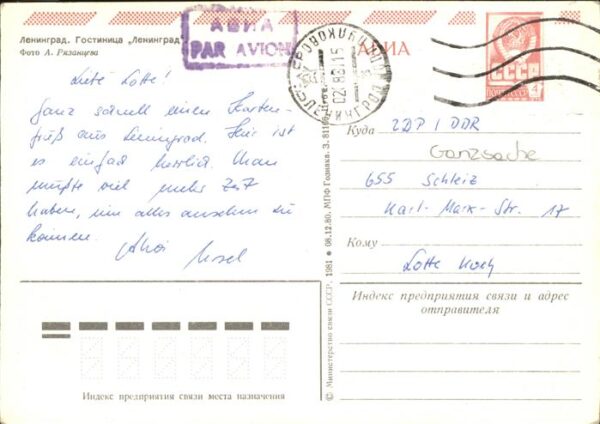 Ленинград. Гостиница „Ленинград“
Фото А. Рязанцева
АВИА
PAR AVION
АВИА
СССР
ПОЧТА СССР
4К
02 83 15
Liebe Lotte!
Ganz schnell einen Karten-
gruß aus Leningrad. Hier ist
es einfach herrlich. Man
müßte viel mehr Zeit
haben, um alles ansehen zu
können.
Куда ГДР / DDR
Ganzsache
655 Schleiz
Karl-Marx-Str. 17
Кому
Lotte Koch
Индекс предприятия связи и адрес
отправителя
Индекс предприятия связи места назначения
© Министерство связи СССР. 1981 • 08.12.80. МПФ Гознака. З.